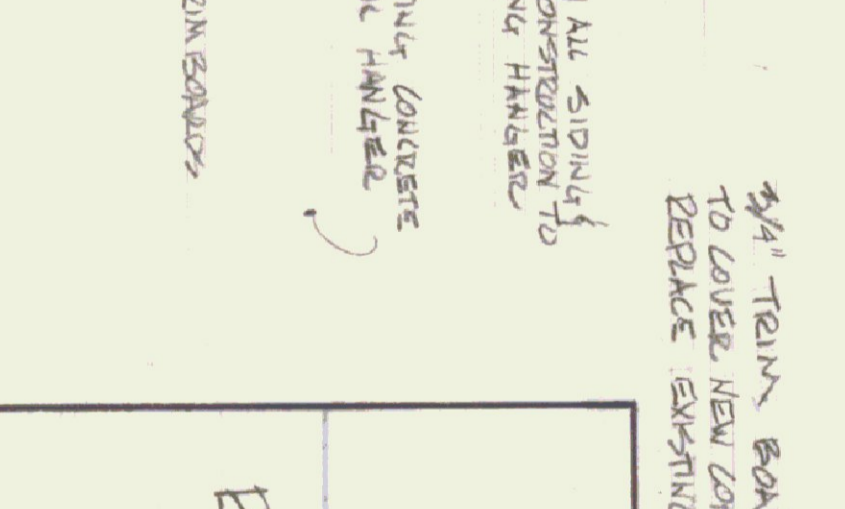 3/4" TRIM BOA
TO COVER NEW CO
REPLACE EXISTIN
ALL SIDING &
ONSTRUCTION TO
NG HANGER
ING CONCRETE
HANGER
RIM BOARDS
E